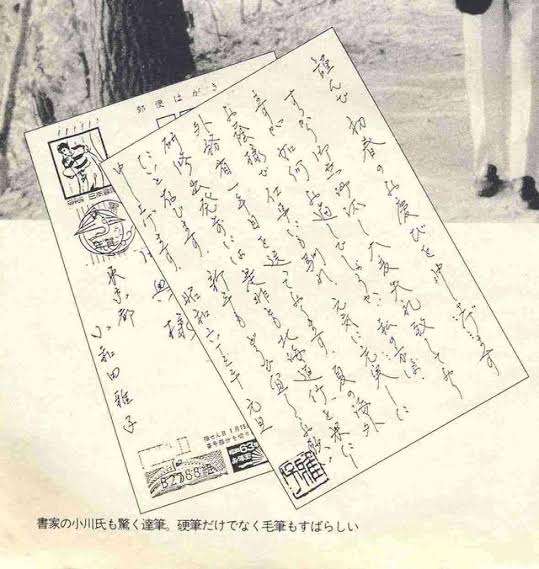 謹んで初春のお慶びを申し上げます
すっかり御無沙汰し大変失礼致しており
ますが如何お過しでしょうか。私の方は、
お蔭様で仕事にも馴れ、元気に充実した
外務省一年目を送っております。夏の海外
研修出発前には是非とも北海道行を果た
たいと存じます。新年もどうぞ宜しくお願い
申し上げます。 昭和六十三年 元旦
雅子
郵便はがき
年賀
様
東京都
小和田雅子
63
書家の小川氏も驚く達筆。硬筆だけでなく毛筆もすばらしい